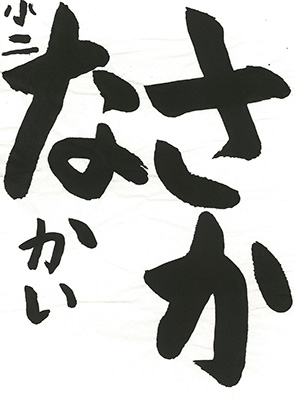 さか
な
小二
かい